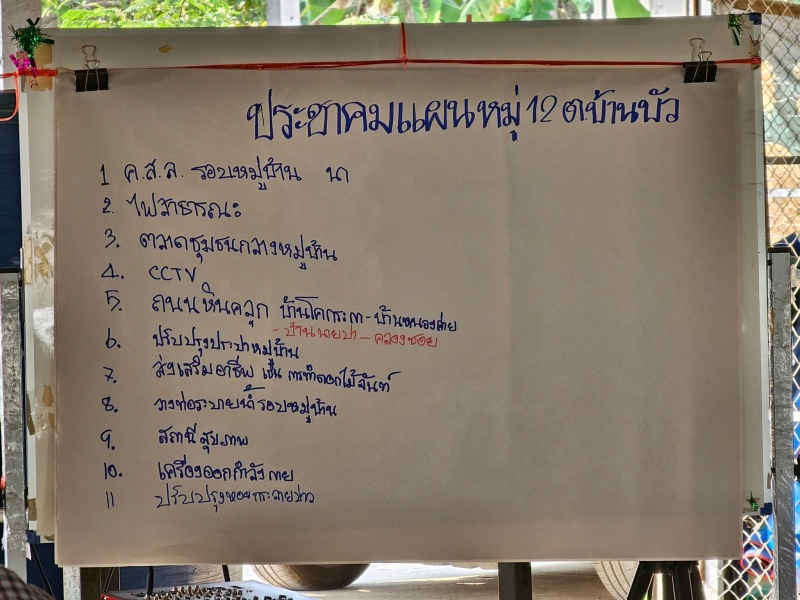 ประชาคมแผนหมู่ 12 ต.บ้านบัว
1 ค.ส.ล. รอบหมู่บ้าน นา
2. ไฟสาธารณะ
3. ตลาดชุมชนกลางหมู่บ้าน
4. CCTV
5. ถนนหินคลุก บ้านโคกระกา - บ้านหนองค่าย
- บ้านนายปา - คลองซอย
6. ปรับปรุงประปาหมู่บ้าน
7. ส่งเสริมอาชีพ เช่น การทำดอกไม้จันท์
8. วางท่อระบายน้ำรอบหมู่บ้าน
9. สถานีสุขภาพ
10. เครื่องออกกำลังกาย
11 ปรับปรุงหอยกระจายข่าว